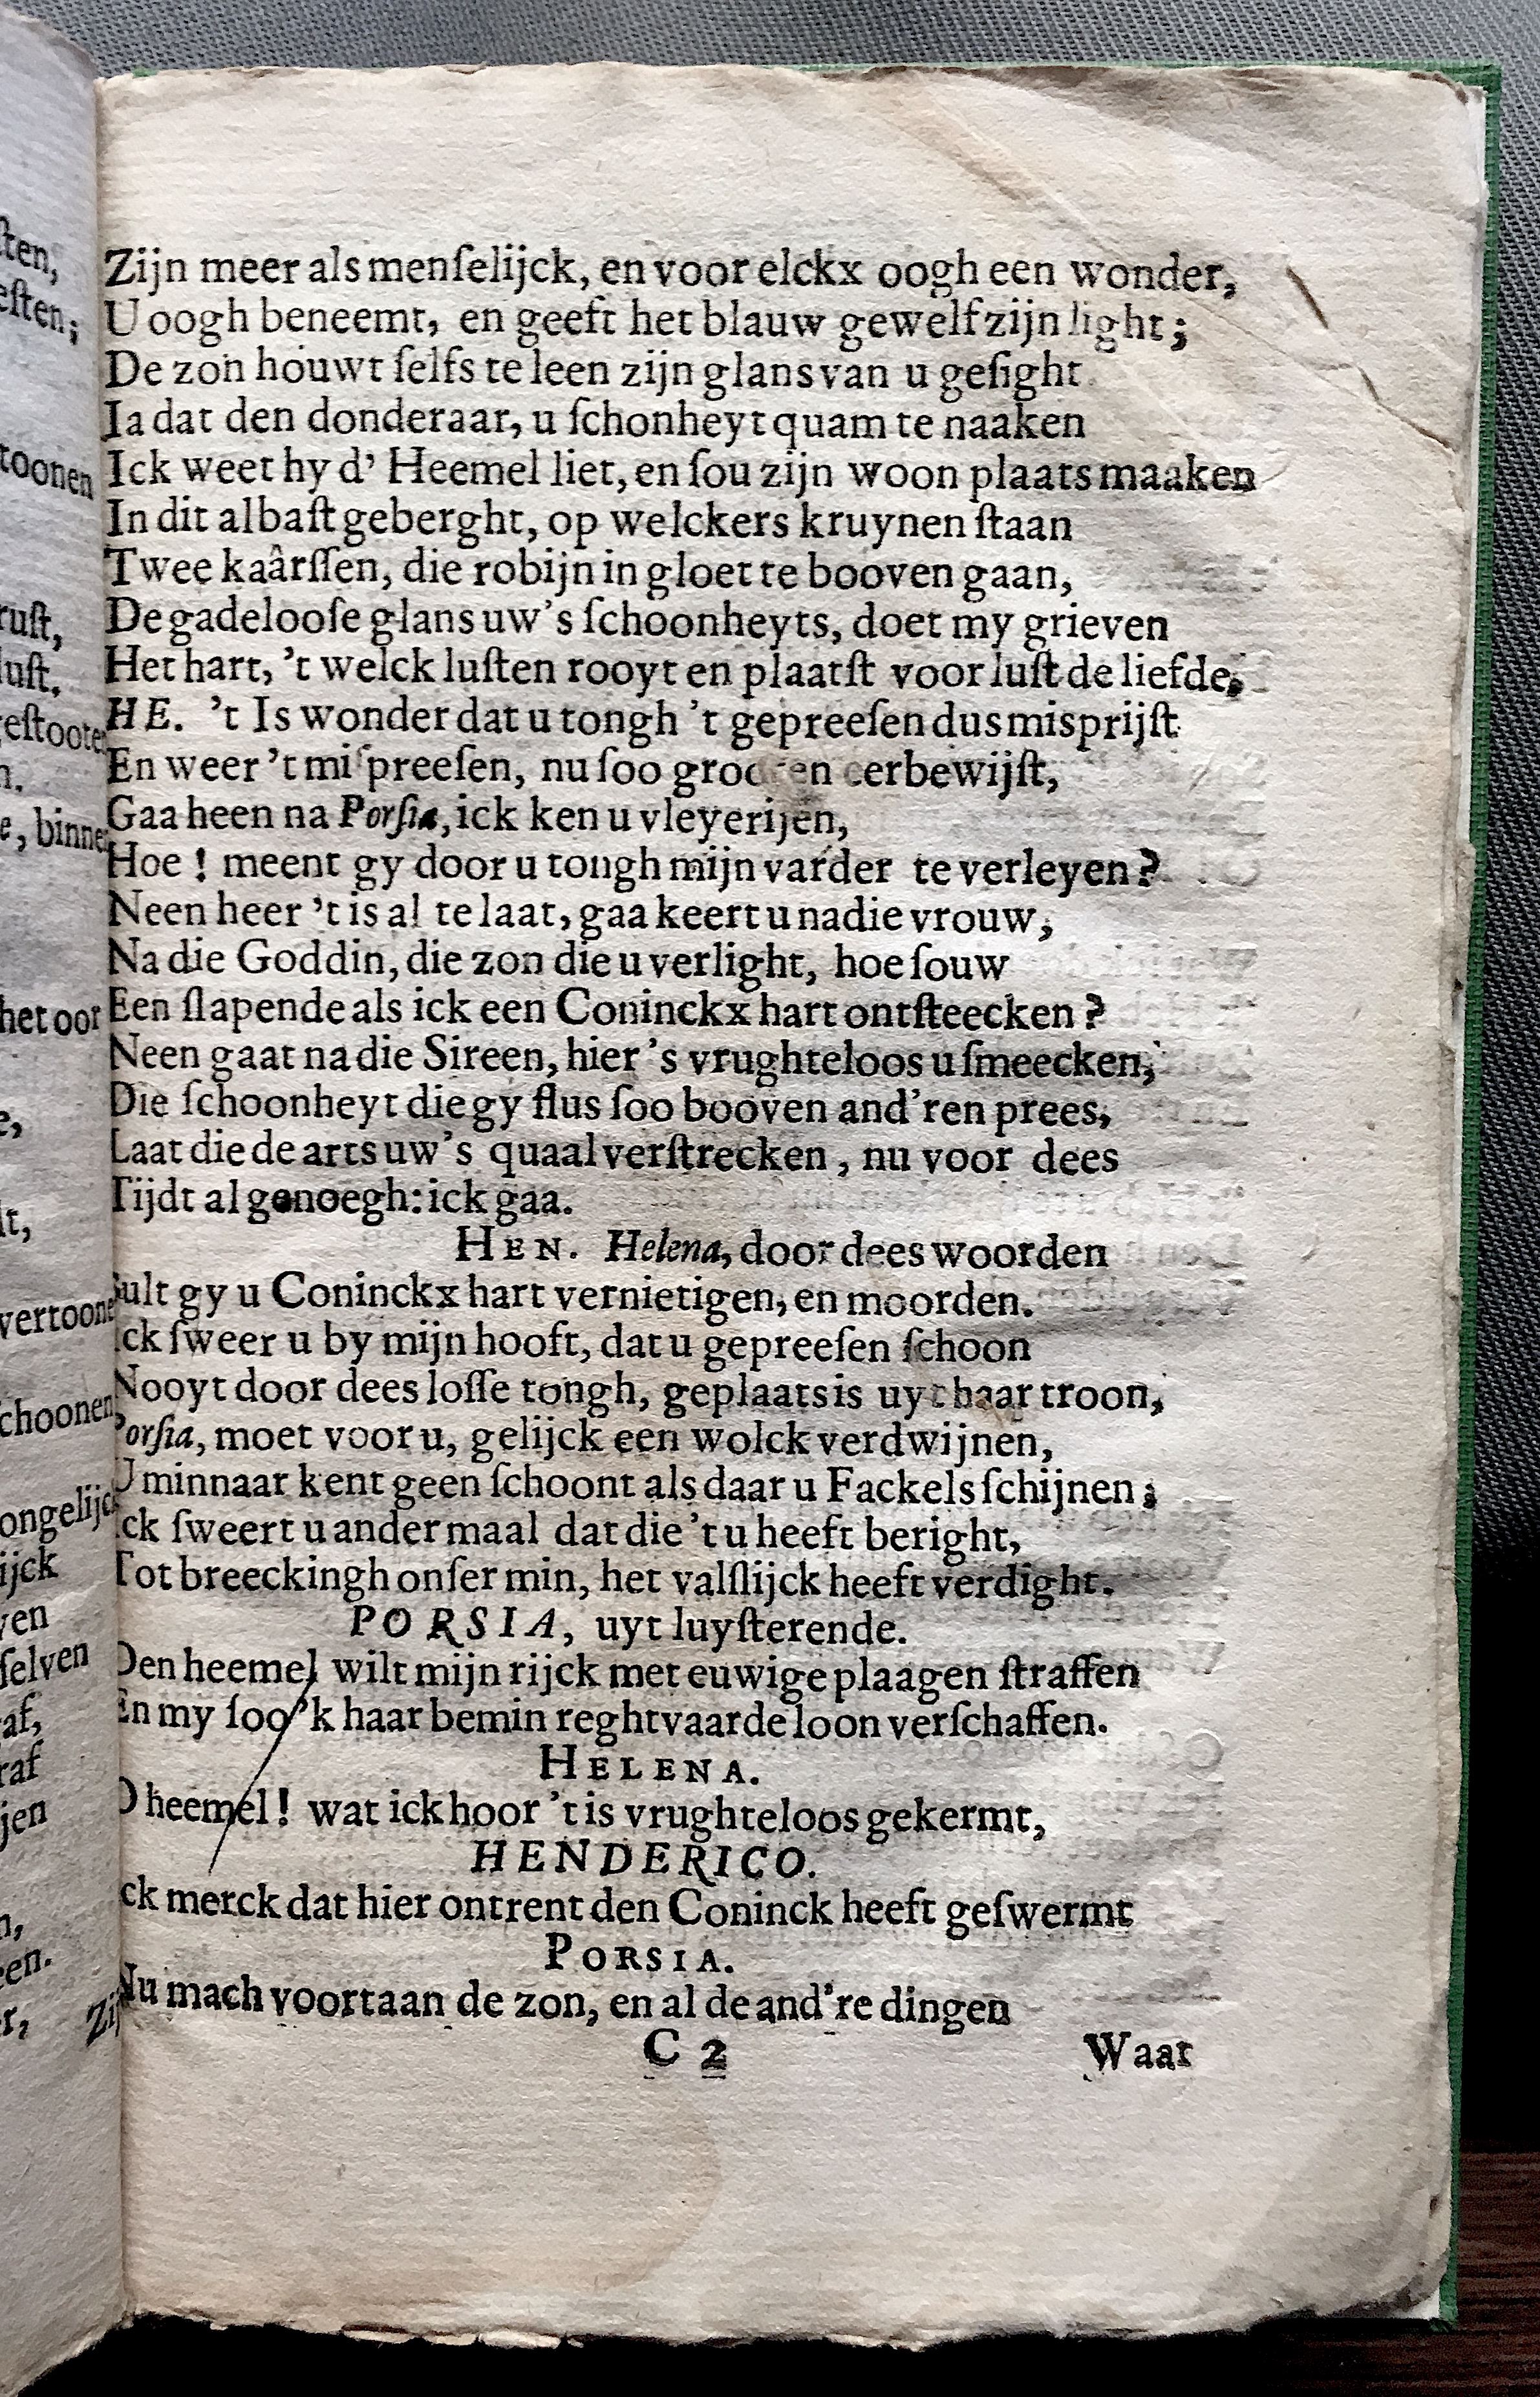 Zijn meer als menſelijck, en voor elckx oogh een wonder,
U oogh beneemt, en geeft het blauw gewelf zijn light;
De zon houwt ſelfs te leen zijn glans van u geſight.
Ia dat den donderaar, u ſchonheyt quam te naaken
Ick weet hy d' Heemel liet, en ſou zijn woon plaats maaken
In dit albaſt geberght, op welckers kruynen ſtaan
Twee kaârſſen, die robijn in gloet te booven gaan,
De gadelooſe glans uw's ſchoonheyts, doet my grieven
Het hart, 't welck luſten rooyt en plaatſt voor luſt de liefde,
HE. 't Is wonder dat u tongh 't gepreeſen dus misprijſt
En weer 't miſpreeſen, nu ſoo eerbewijſt,
Gaa heen na Porſia, ick ken u vleyerijen,
Hoe! meent gy door u tongh mijn varder te verleyen?
Neen heer 't is al te laat, gaa keert u na die vrouw,
Na die Goddin, die zon die u verlight, hoe ſouw
Een ſlapende als ick een Coninckx hart ontſteecken?
Neen gaat na die Sireen, hier's vrughteloos u ſmeecken,
Die ſchoonheyt die gy flus ſoo booven and'ren prees,
Laat die de arts uw's quaal verſtrecken, nu voor dees
Tijdt al genoegh: ick gaa.
HEN. Helena, door dees woorden
Sult gy u Coninckx hart vernietigen, en moorden.
Ick ſweer u by mijn hooft, dat u gepreeſen ſchoon
Nooyt door dees loſſe tongh, geplaats is uyt haar troon,
Porſia, moet voor u, gelijck een wolck verdwijnen,
U minnaar kent geen ſchoont als daar u Fackels ſchijnen;
Ick ſweert u andermaal dat die 't u heeft beright,
Tot breeckingh onſer min, het valſlijck heeft verdight.
PORSIA, uyt luyſterende.
Den heemel wilt mijn rijck met euwige plaagen ſtraffen
En my ſoo'k haar bemin reghtvaarde loon verſchaffen.
HELENA.
O heemel! wat ick hoor 't is vrughteloos gekermt,
HENDERICO.
Ick merck dat hier ontrent den Coninck heeft geſwermt
PORSIA.
Nu mach voortaan de zon, en al de and're dingen
C 2 Waar